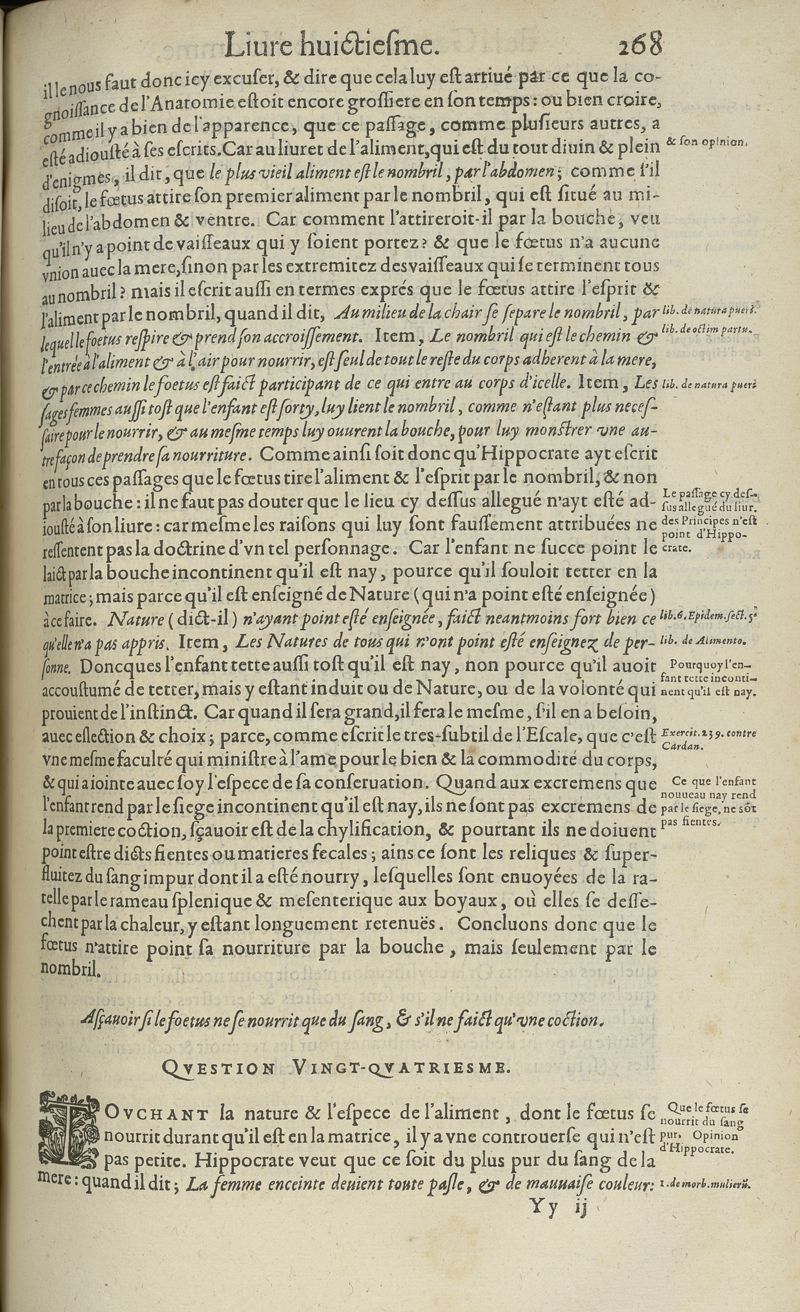 Liure huictiesme. 268
ille nous faut donc icy excuser, & dire que cela luy est arriué par ce que la co-
gnoissance de l'Anatomie estoit encore grossiere en son temps: ou bien croire,
comme il y a bien de l'apparence, que ce passage, comme plusieurs autres, a
esté adiousté à ses escrits. Car au liuret de l'aliment, qui est du tout diuin & plein
& son opinion.
d'enigmes, il dit, que le plus vieil aliment est le nombril, par l'abdomen; comme s'il
disoit, le fœtus attire son premier aliment par le nombril, qui est situé au mi-
lieu de l'abdomen & ventre. Car comment l'attireroit-il par la bouche, veu
qu'il n'y a point de vaisseaux qui y soient portez? & que le fœtus n'a aucune
vnion auec la mere, sinon par les extremitez des vaisseaux qui se terminent tous
au nombril? mais il escrit aussi en termes exprés que le fœtus attire l'esprit &
l'aliment par le nombril, quand il dit, Au milieu de la chair se separe le nombril, par
lib. de natura pueri.
lequel le foetus respire & prend son accroissement. Item, Le nombril qui est le chemin &
lib. de octim partu.
l'entrée à l'aliment & à l'air pour nourrir, est seul de tout le reste du corps adherent à la mere,
& par ce chemin le foetus est faict participant de ce qui entre au corps d'icelle. Item, Les
lib. de natura pueri
sages femmes aussi tost que l'enfant est sorty, luy lient le nombril, comme n'estant plus neces-
saire pour le nourrir, & au mesme temps luy ouurent la bouche, pour luy monstrer vne au-
tre façon de prendre sa nourriture. Comme ainsi soit donc qu'Hippocrate ayt escrit
en tous ces passages que le fœtus tire l'aliment & l'esprit par le nombril, & non
par la bouche: il ne faut pas douter que le lieu cy dessus allegué n'ayt esté ad-
Le passage cy des-
sus allegué du liur.
iousté à son liure: car mesme les raisons qui luy sont faussement attribuées ne
des Principes n'est
point d'Hippo-
ressentent pas la doctrine d'vn tel personnage. Car l'enfant ne succe point le
crate.
laict par la bouche incontinent qu'il est nay, pource qu'il souloit tetter en la
matrice; mais parce qu'il est enseigné de Nature (qui n'a point esté enseignée)
à ce faire. Nature (dict-il) n'ayant point esté enseignée, faict neantmoins fort bien ce
lib. 6. Epidem. sect. 5.
qu'elle n'a pas appris. Item, Les Natures de tous qui n'ont point esté enseignez de per-
lib. de Alimento.
sonne. Doncques l'enfant tette aussi tost qu'il est nay, non pource qu'il auoit
Pourquoy l'en-
fant tette inconti-
accoustumé de tetter, mais y estant induit ou de Nature, ou de la volonté qui
nent qu'il est nay.
prouient de l'instinct. Car quand il sera grand, il fera le mesme, s'il en a besoin,
auec eslection & choix; parce, comme escrit le tres-subtil de l'Escale, que c'est
Exercit. 239. contre
Cardan.
vne mesme faculté qui ministre à l'ame pour le bien & la commodité du corps,
& qui a iointe auec soy l'espece de sa conseruation. Quand aux excremens que
Ce que l'enfant
nouueau nay rend
l'enfant rend par le siege incontinent qu'il est nay, ils ne sont pas excremens de
par le siege, ne sõt
la premiere coction, sçauoir est de la chylification, & pourtant ils ne doiuent
pas fientes.
point estre dicts fientes ou matieres fecales; ains ce sont les reliques & super-
fluitez du sang impur dont il a esté nourry, lesquelles sont enuoyées de la ra-
telle par le rameau splenique & mesenterique aux boyaux, où elles se desse-
chent par la chaleur, y estant longuement retenuës. Concluons donc que le
fœtus n'attire point sa nourriture par la bouche, mais seulement par le
nombril.
Asçauoir si le foetus ne se nourrit que du sang, & s'il ne faict qu'vne coction.
QVESTION VINGT-QVATRIESME.
TOVCHANT la nature & l'espece de l'aliment, dont le fœtus se
Que le fœtus se
nourrit du sang
nourrit durant qu'il est en la matrice, il y a vne controuerse qui n'est
pur. Opinion
d'Hippocrate.
pas petite. Hippocrate veut que ce soit du plus pur du sang de la
mere: quand il dit; La femme enceinte deuient toute pasle, & de mauuaise couleur:
1. de morb. mulierũ.
Yy ij